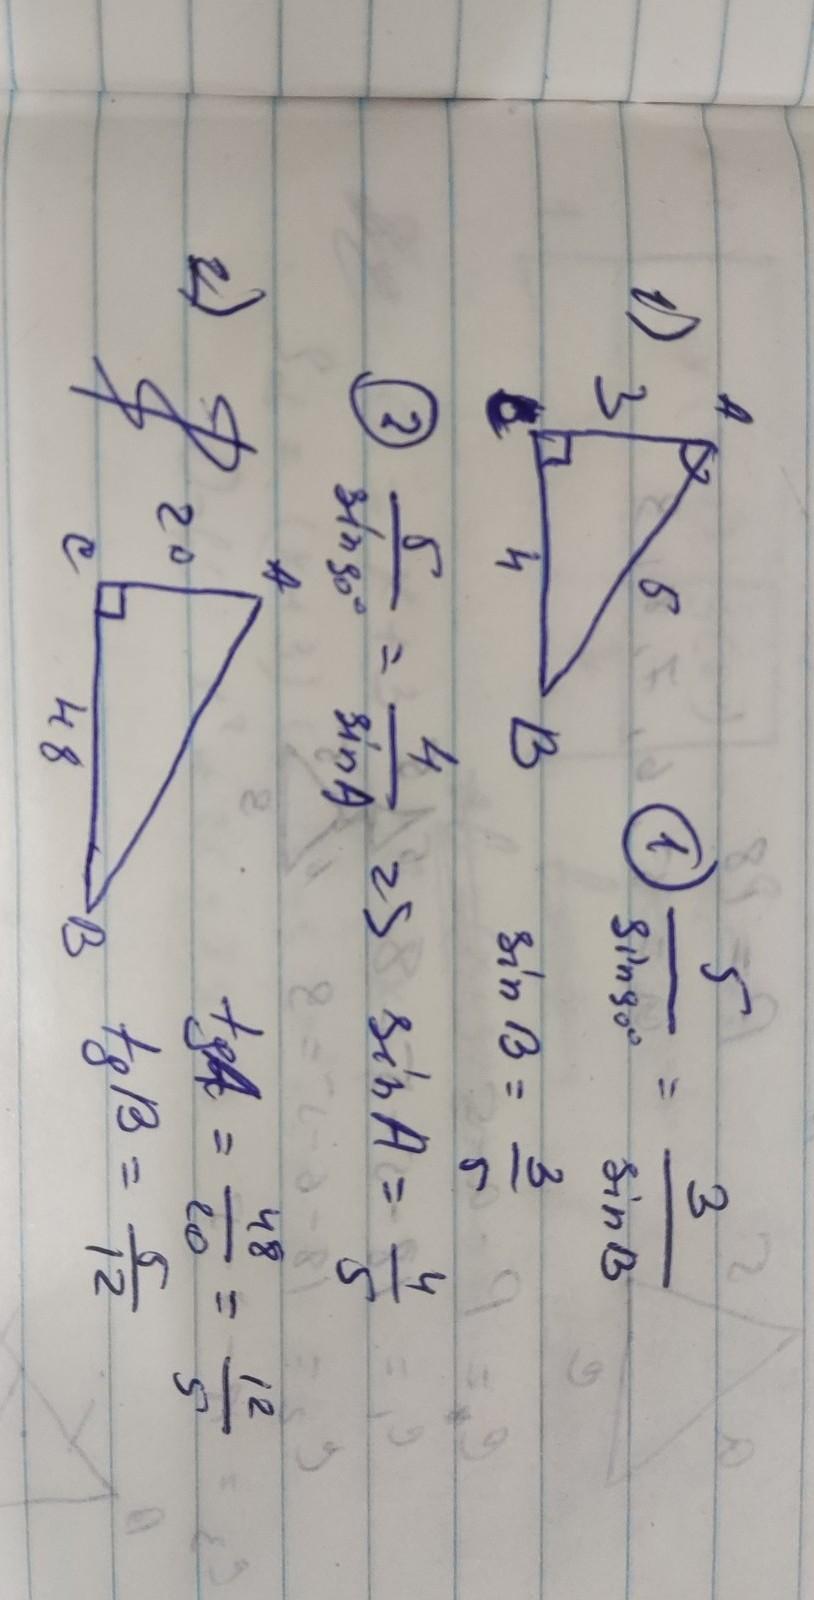 1)
A
3
5
4
B
① 5/sin90° = 3/sinB
sinB = 3/5
② 5/sin90° = 4/sinA
sinA = 4/5
2)
A
20
C
48
B
tgA = 48/20 = 12/5
tgB = 5/12